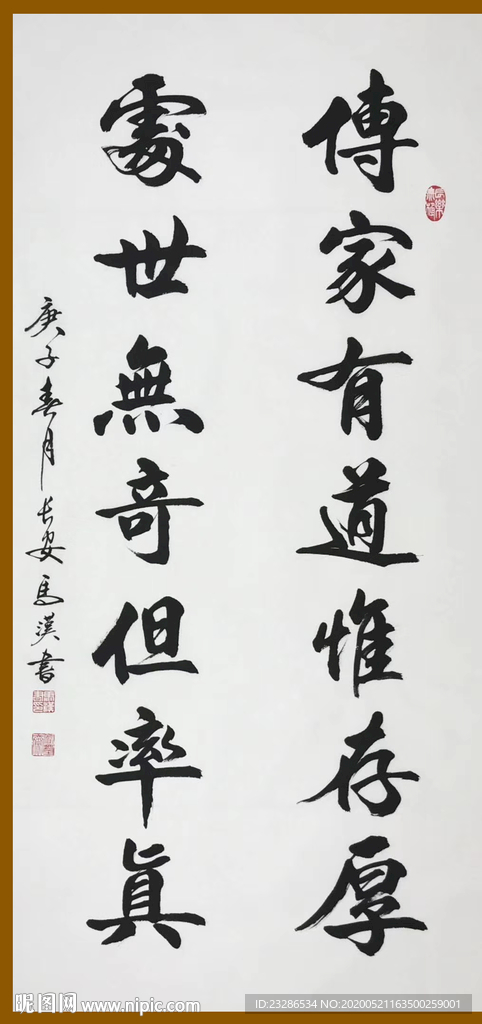 傳家有道惟存厚
處世無奇但率真
庚子春月长安马漢書
昵图网 www.nipic.com
ID:23286534 NO:20200521163500259001